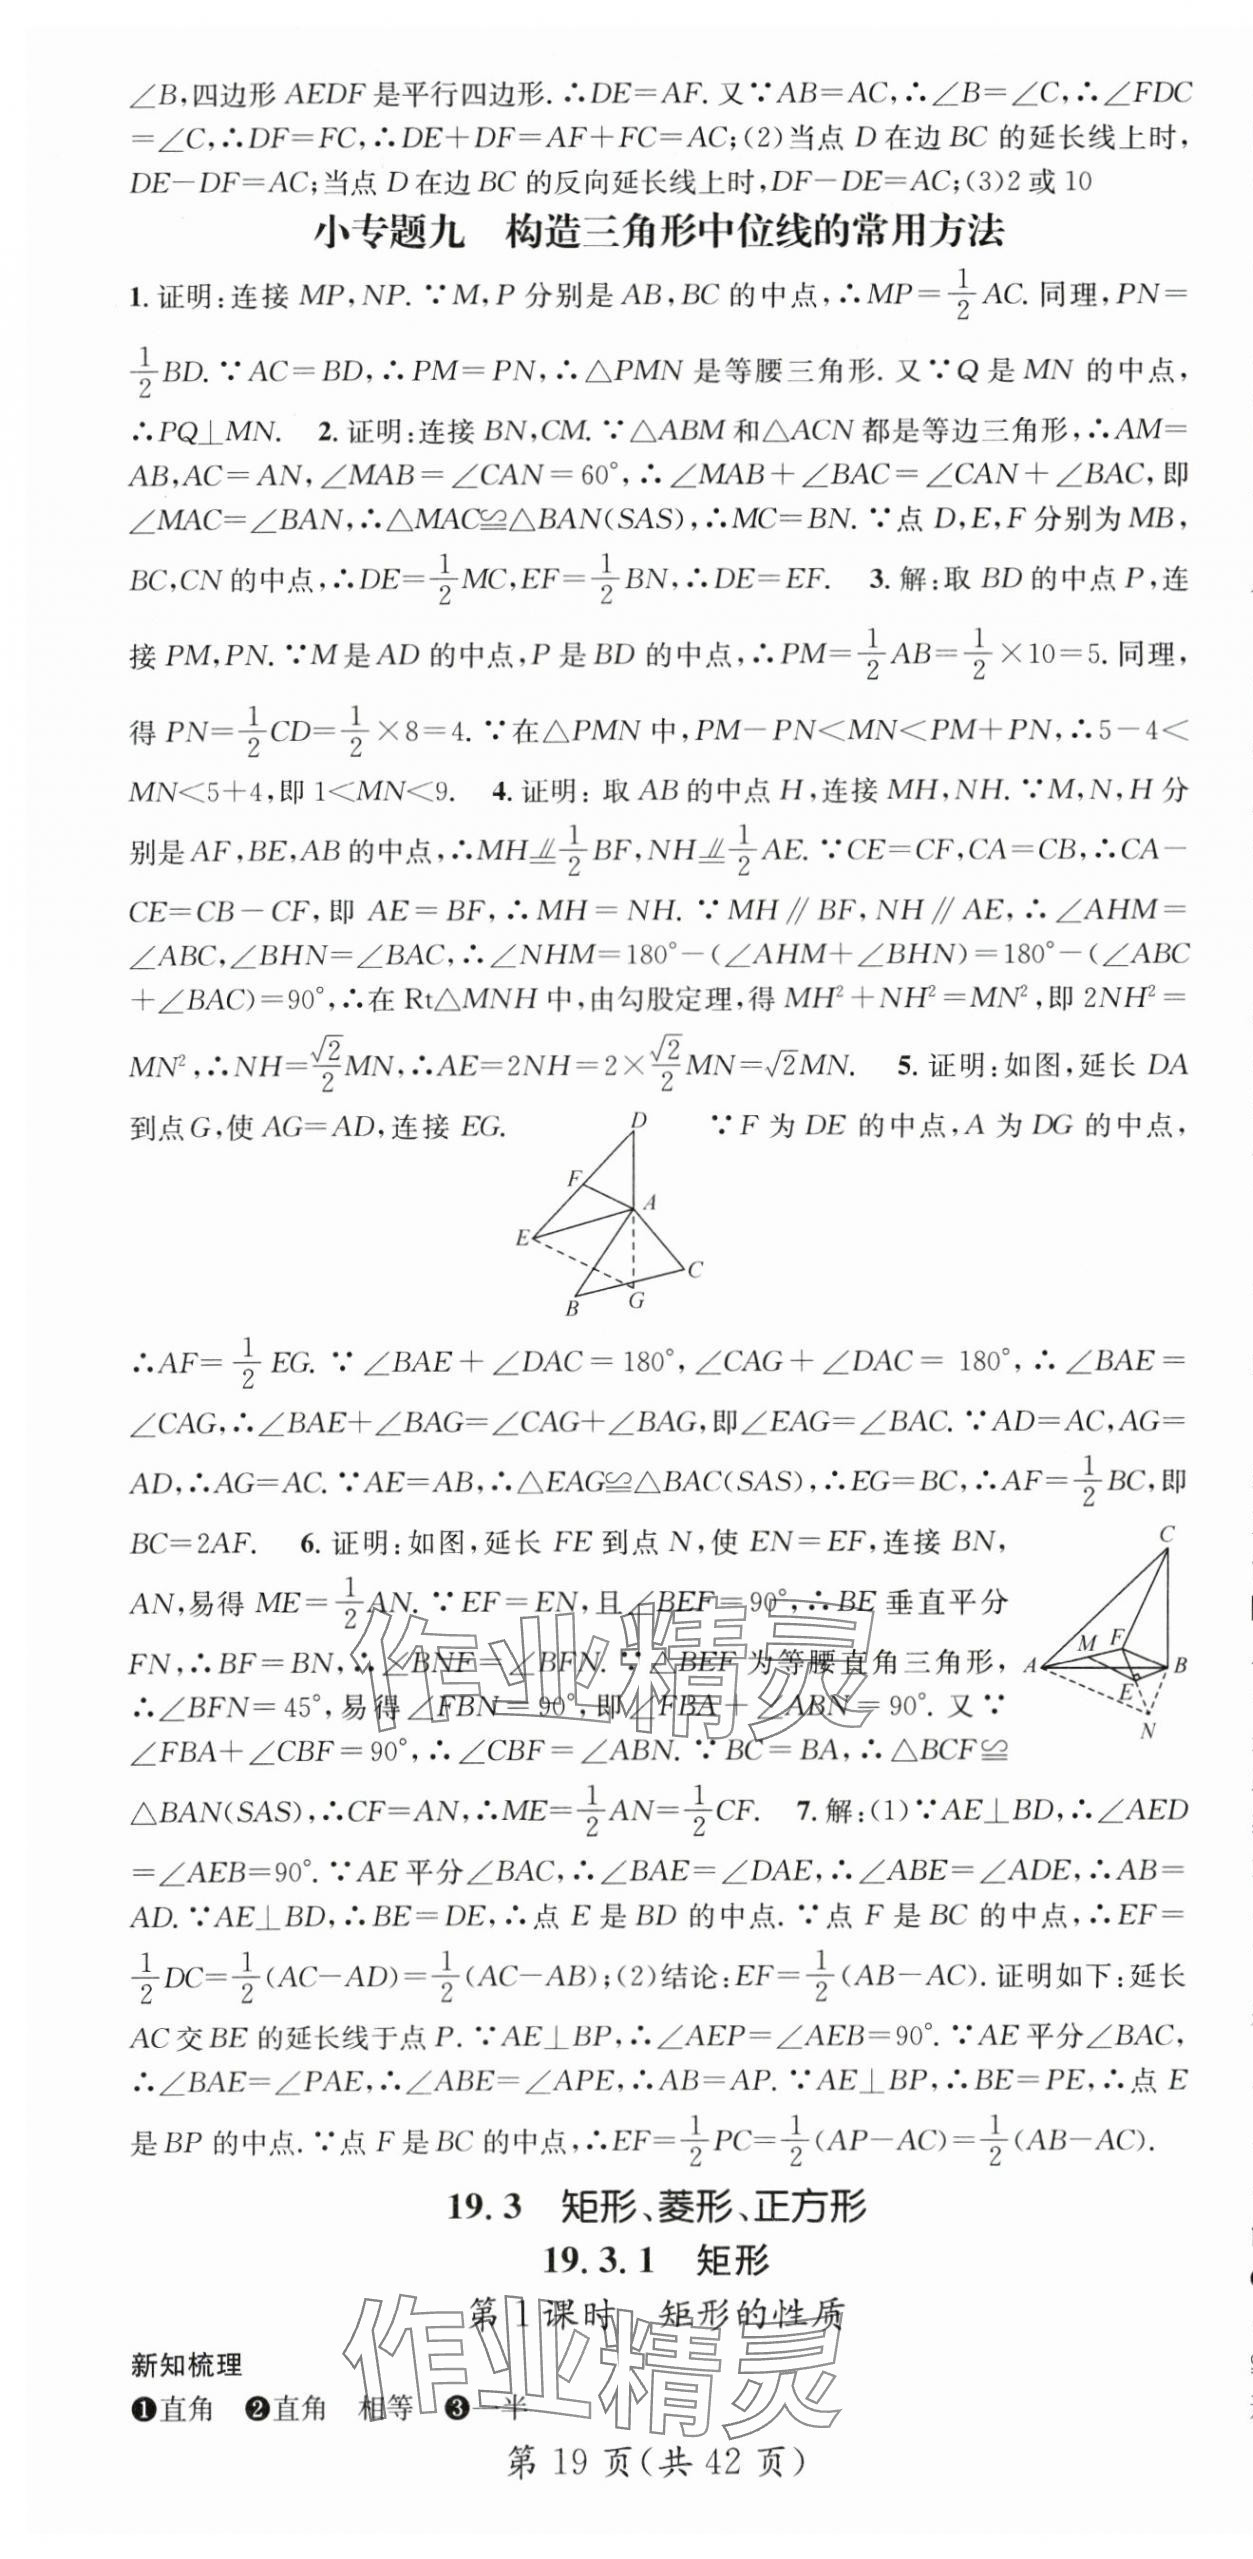 ∠B,四边形 AEDF 是平行四边形.∴DE=AF.又∵AB=AC,∴∠B=∠C,∴∠FDC
=∠C,∴DF=FC,∴DE+DF=AF+FC=AC;(2)当点 D 在边 BC 的延长线上时,
DE-DF=AC;当点 D 在边 BC 的反向延长线上时,DF-DE=AC;(3)2 或 10
小专题九 构造三角形中位线的常用方法
1.证明:连接 MP,NP.∵M,P 分别是 AB,BC 的中点,∴MP=1/2 AC.同理,PN=
1/2 BD.∵AC=BD,∴PM=PN,∴△PMN 是等腰三角形.又∵Q 是 MN 的中点,
∴PQ⊥MN. 2.证明:连接 BN,CM.∵△ABM 和△ACN 都是等边三角形,∴AM=
AB,AC=AN,∠MAB=∠CAN=60°,∴∠MAB+∠BAC=∠CAN+∠BAC,即
∠MAC=∠BAN,∴△MAC≌△BAN(SAS),∴MC=BN.∵点 D,E,F 分别为 MB,
BC,CN 的中点,∴DE=1/2 MC,EF=1/2 BN,∴DE=EF. 3.解:取 BD 的中点 P,连
接 PM,PN.∵M 是 AD 的中点,P 是 BD 的中点,∴PM=1/2 AB=1/2×10=5.同理,
得 PN=1/2 CD=1/2×8=4.∵在△PMN 中,PM-PN<MN<PM+PN,∴5-4<
MN<5+4,即 1<MN<9. 4.证明:取 AB 的中点 H,连接 MH,NH.∵M,N,H 分
别是 AF,BE,AB 的中点,∴MH⫽1/2 BF,NH⫽1/2 AE.∵CE=CF,CA=CB,∴CA-
CE=CB-CF,即 AE=BF,∴MH=NH.∵MH∥BF,NH∥AE,∴∠AHM=
∠ABC,∠BHN=∠BAC,∴∠NHM=180°-(∠AHM+∠BHN)=180°-(∠ABC
+∠BAC)=90°,∴在 Rt△MNH 中,由勾股定理,得 MH²+NH²=MN²,即 2NH²=
MN²,∴NH=√2/2 MN,∴AE=2NH=2×√2/2 MN=√2MN. 5.证明:如图,延长 DA
到点 G,使 AG=AD,连接 EG. ∵F 为 DE 的中点,A 为 DG 的中点,
D
F
A
E
C
B
G
∴AF=1/2 EG.∵∠BAE+∠DAC=180°,∠CAG+∠DAC=180°,∴∠BAE=
∠CAG,∴∠BAE+∠BAG=∠CAG+∠BAG,即∠EAG=∠BAC.∵AD=AC,AG=
AD,∴AG=AC.∵AE=AB,∴△EAG≌△BAC(SAS),∴EG=BC,∴AF=1/2 BC,即
BC=2AF. 6.证明:如图,延长 FE 到点 N,使 EN=EF,连接 BN,
AN,易得 ME=1/2 AN.∵EF=EN,且∠BEF=90°,∴BE 垂直平分
FN,∴BF=BN,∴∠BNF=∠BFN.∵△BEF 为等腰直角三角形,
∴∠BFN=45°,易得∠FBN=90°,即∠FBA+∠ABN=90°.又∵
∠FBA+∠CBF=90°,∴∠CBF=∠ABN.∵BC=BA,∴△BCF≌
C
M
F
A
B
E
N
△BAN(SAS),∴CF=AN,∴ME=1/2 AN=1/2 CF. 7.解:(1)∵AE⊥BD,∴∠AED
=∠AEB=90°.∵AE 平分∠BAC,∴∠BAE=∠DAE,∴∠ABE=∠ADE,∴AB=
AD.∵AE⊥BD,∴BE=DE,∴点 E 是 BD 的中点.∵点 F 是 BC 的中点,∴EF=
1/2 DC=1/2(AC-AD)=1/2(AC-AB);(2)结论:EF=1/2(AB-AC).证明如下:延长
AC 交 BE 的延长线于点 P.∵AE⊥BP,∴∠AEP=∠AEB=90°.∵AE 平分∠BAC,
∴∠BAE=∠PAE,∴∠ABE=∠APE,∴AB=AP.∵AE⊥BP,∴BE=PE,∴点 E
是 BP 的中点.∵点 F 是 BC 的中点,∴EF=1/2 PC=1/2(AP-AC)=1/2(AB-AC).
19.3 矩形、菱形、正方形
19.3.1 矩形
第 1 课时 矩形的性质
新知梳理
❶直角 ❷直角 相等 ❸一半
第 19 页(共 42 页)
作业精灵
作业精灵